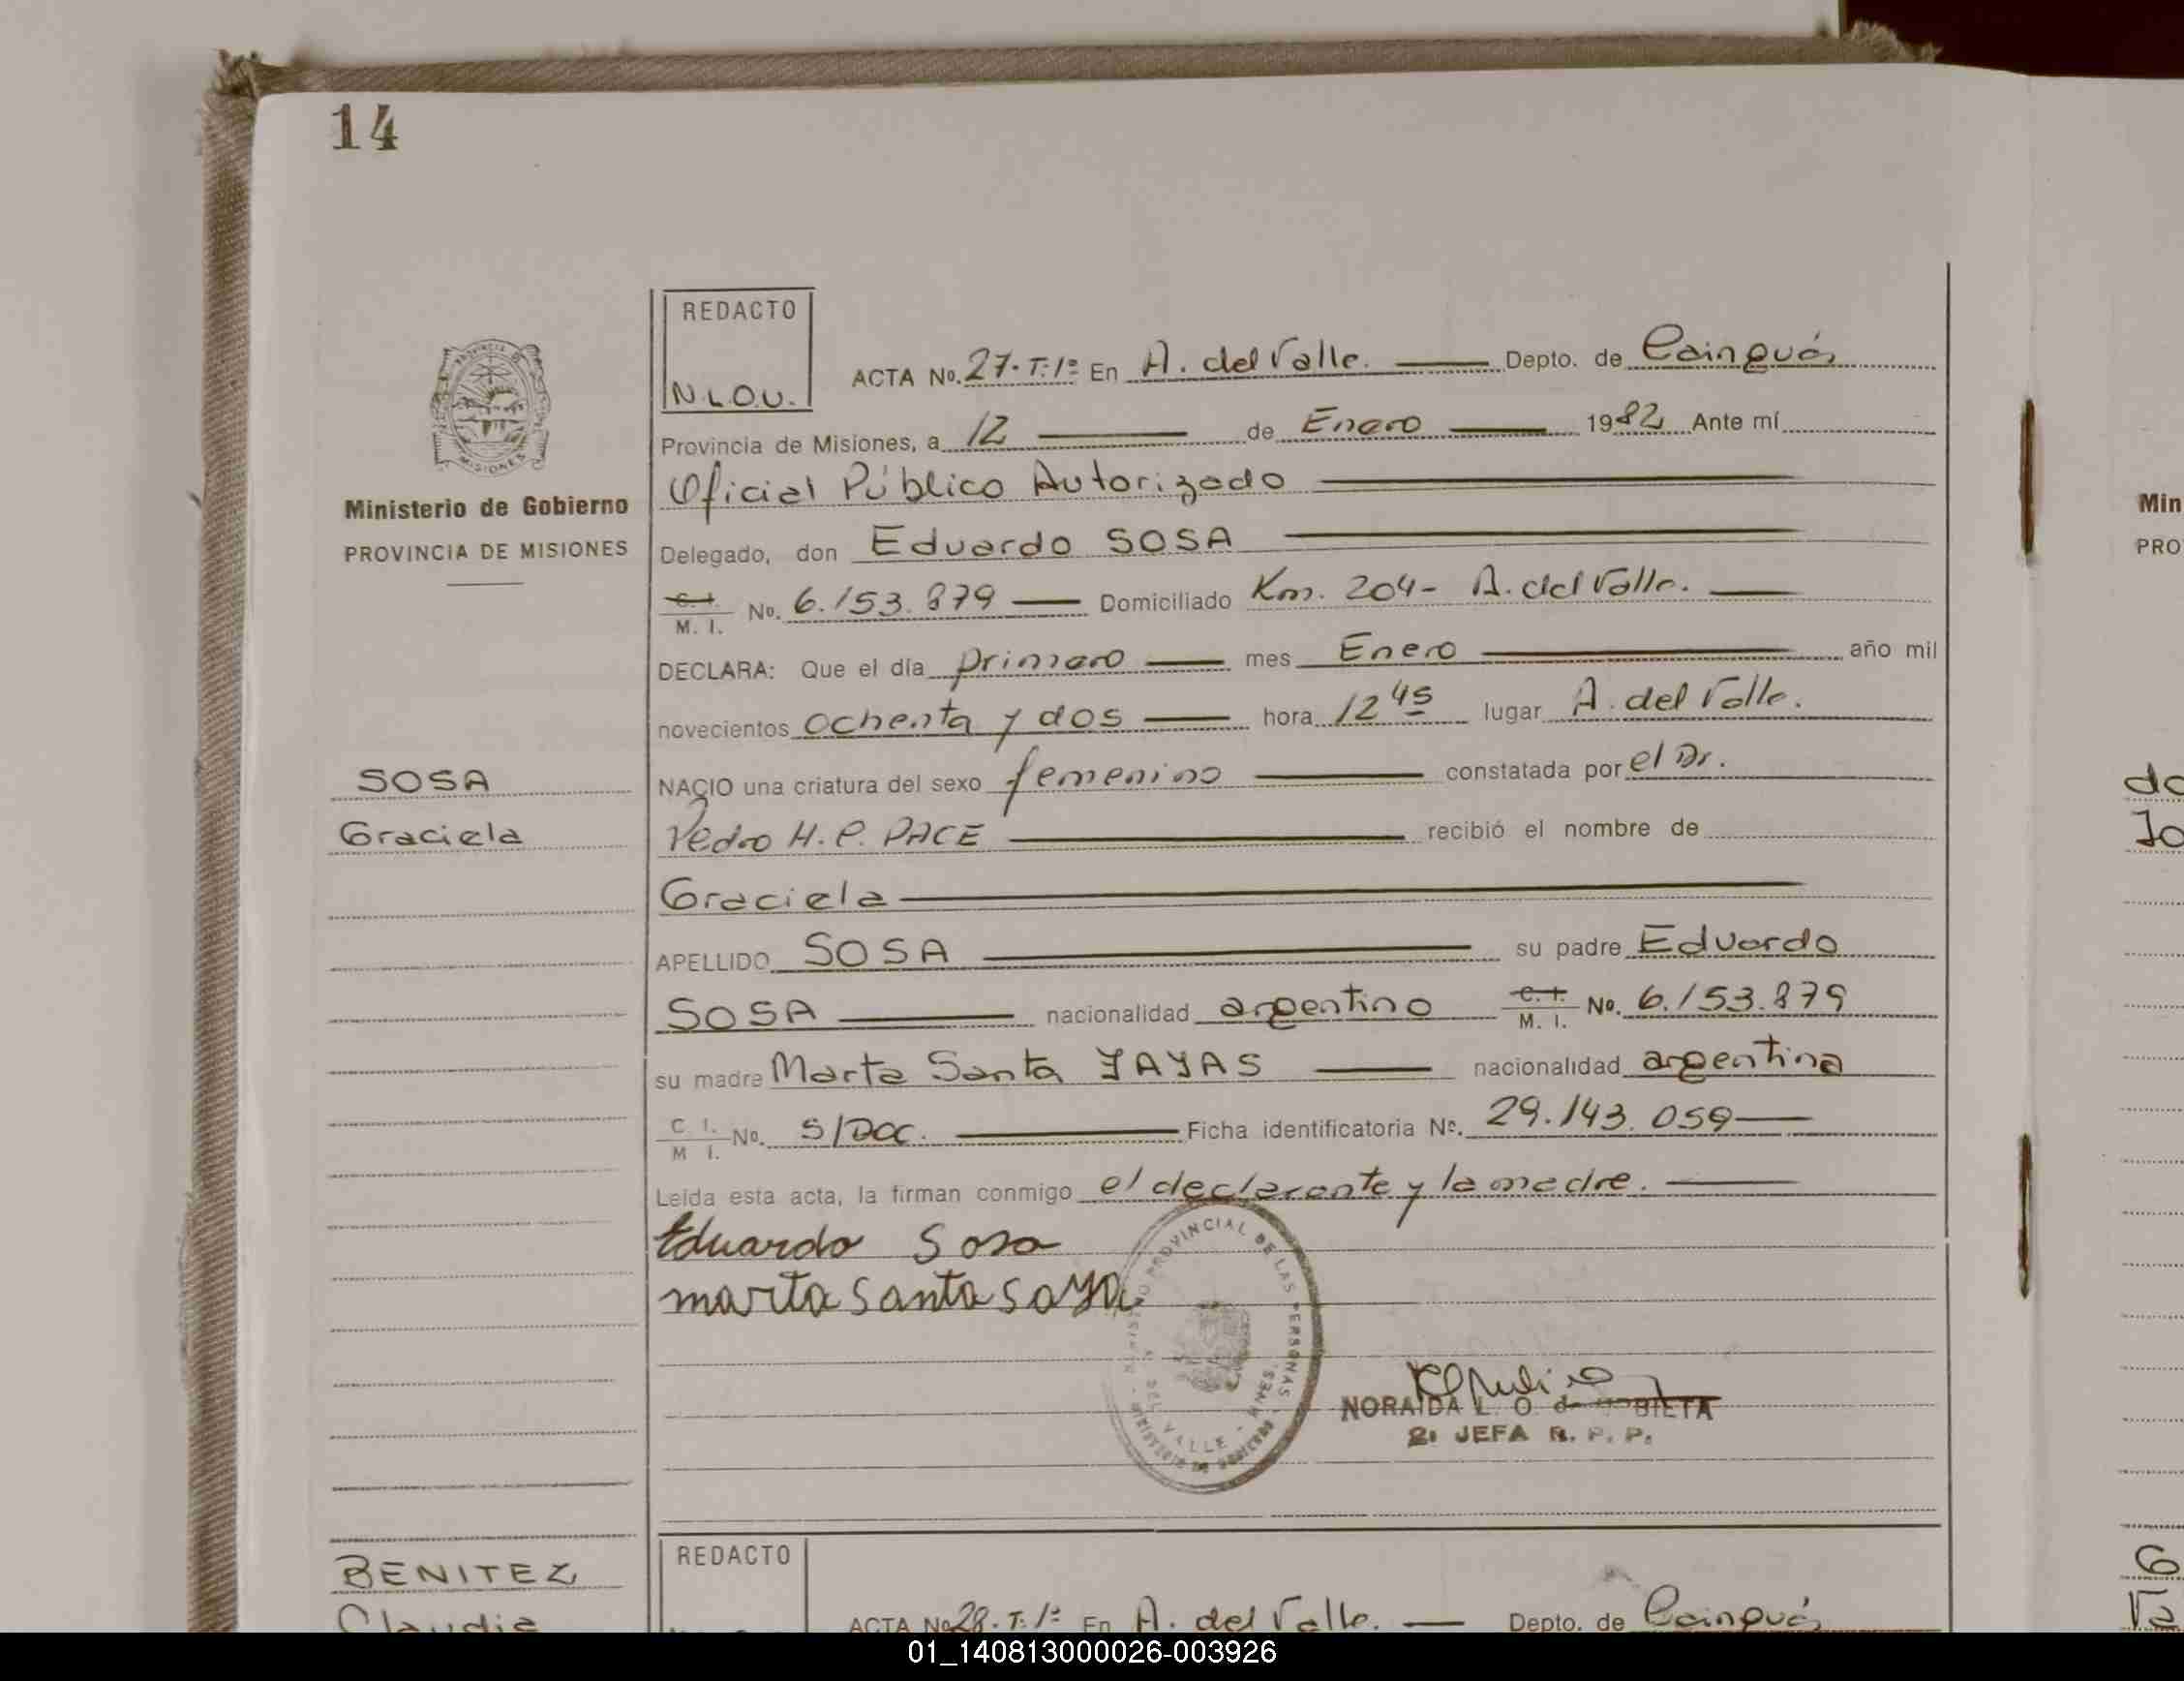 14
REDACTO
N.L.O.U.
ACTA No. 27. T. 1º En A. del Valle. Depto. de Cainguás
Provincia de Misiones, a 12 de Enero 1982 Ante mí
Oficial Público Autorizado
Ministerio de Gobierno
PROVINCIA DE MISIONES
Delegado, don Eduardo SOSA
C. I.
M. I. No. 6.153.879 Domiciliado Km. 204- A. del Valle.
DECLARA: Que el día primero mes Enero año mil
novecientos ochenta y dos hora 12 45 lugar A. del Valle.
SOSA
Graciela
NACIO una criatura del sexo femenino constatada por el Dr.
Pedro H. P. PACE recibió el nombre de
Graciela
APELLIDO SOSA su padre Eduardo
SOSA nacionalidad argentino C. I. M. I. No. 6.153.879
su madre Marta Santa YAYAS nacionalidad argentina
C. I.
M. I. No. S/DOC. Ficha identificatoria Nº. 29.143.059
Leída esta acta, la firman conmigo el declarante y la madre.
Eduardo Sosa
marta santa saya
PROVINCIAL DE LAS PERSONAS
DEL VALLE
NORAIDA L. O. de
2ª JEFA R. P. P.
BENITEZ
Claudia
REDACTO
ACTA No 28. T. 1º En A. del Valle. Depto. de Cainguás
Min
PRO
01_140813000026-003926